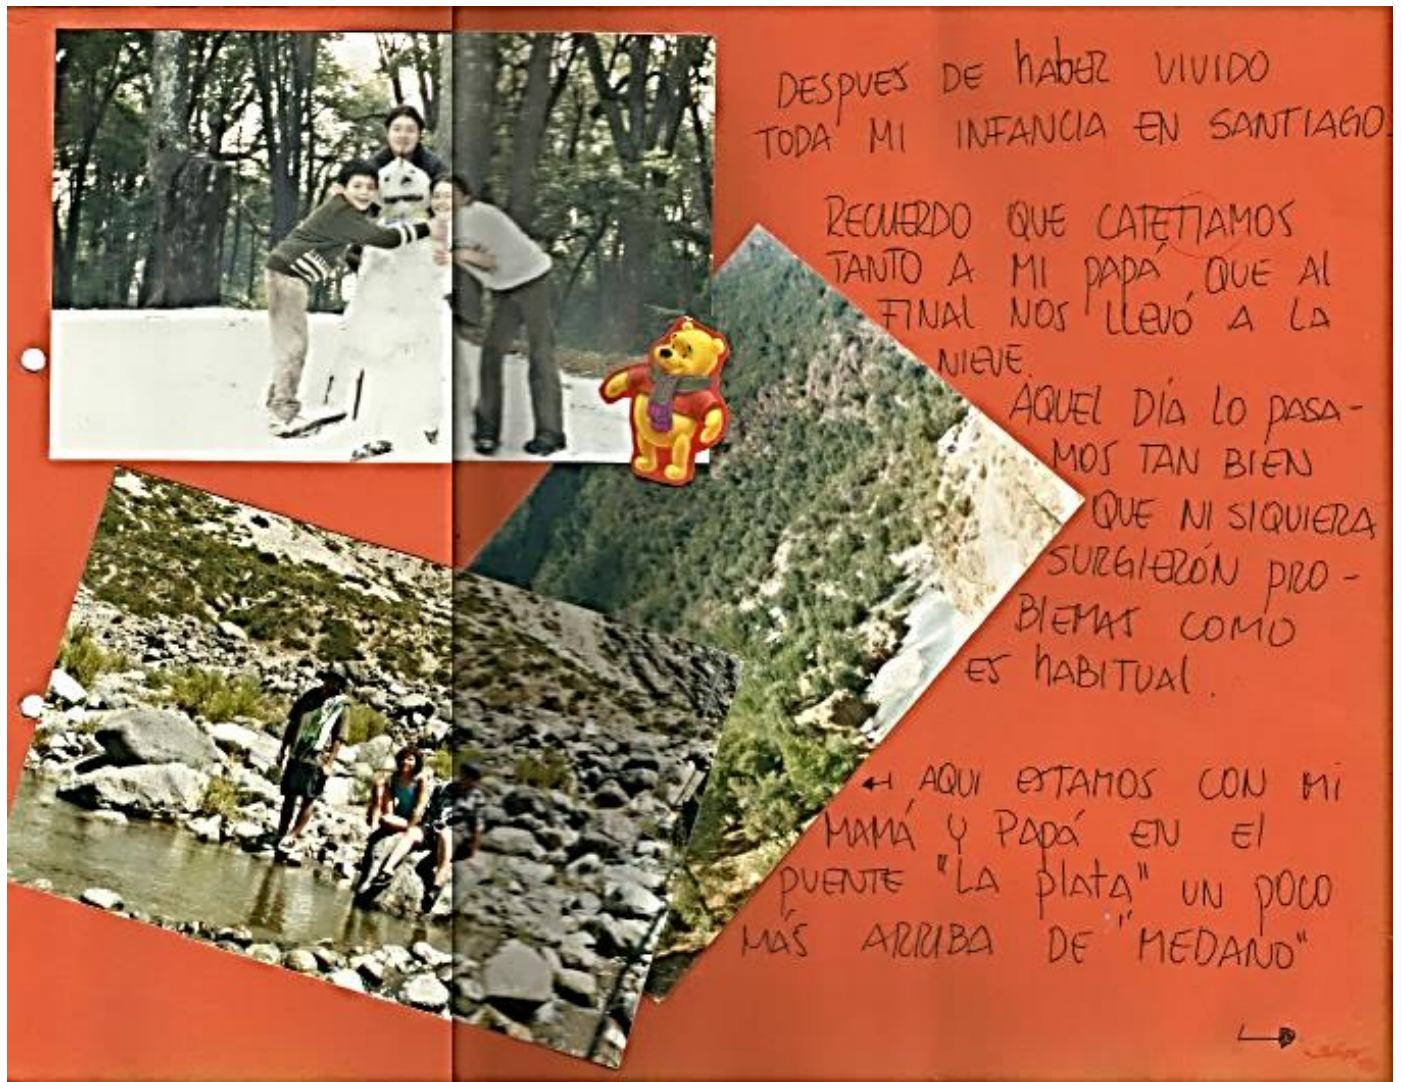 DESPUES DE HABER VIVIDO
TODA MI INFANCIA EN SANTIAGO.
RECUERDO QUE CATETIAMOS
TANTO A MI PAPÁ QUE AL
FINAL NOS LLEVÓ A LA
NIEVE.
AQUEL DÍA LO PASA-
MOS TAN BIEN
QUE NI SIQUIERA
SURGIERÓN PRO-
BLEMAS COMO
ES HABITUAL.
← AQUI ESTAMOS CON MI
MAMÁ Y PAPÁ EN El
PUENTE "LA PlATA" UN POCO
MÁS ARRIBA DE "MEDANO"